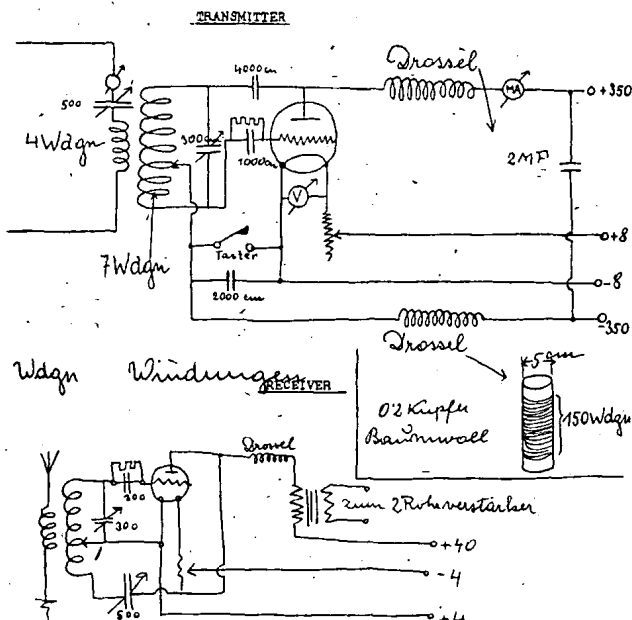 TRANSMITTER
Drossel
4000cm
500
MA
+350
4Wdgn
300cm
1000cm
2MF
V
7Wdgn
Taster
+8
-8
2000 cm
-350
Drossel
Wdgn Windungen
RECEIVER
5cm
02 Kupfer
Baumwoll
150Wdgn
Drossel
200
300
zum 2Rohrverstärker
+40
-4
500
+4